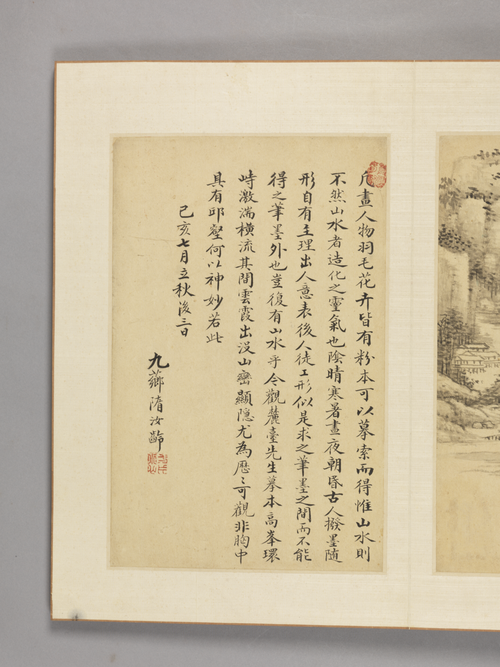 凡畫人物羽毛花卉皆有粉本可以摹索而得惟山水則
不然山水者造化之靈氣也陰晴寒暑晝夜朝昏古人撥墨隨
形自有主理出人意表後人徒工形似是求之筆墨之間而不能
得之筆墨外也豈復有山水乎今觀麓臺先生摹本高峯環
峙激湍橫流其間雲霞出沒山巒顯隱尤為歷〻可觀非胸中
具有邱壑何以神妙若此
己亥七月立秋後三日
九薌隋汝齡